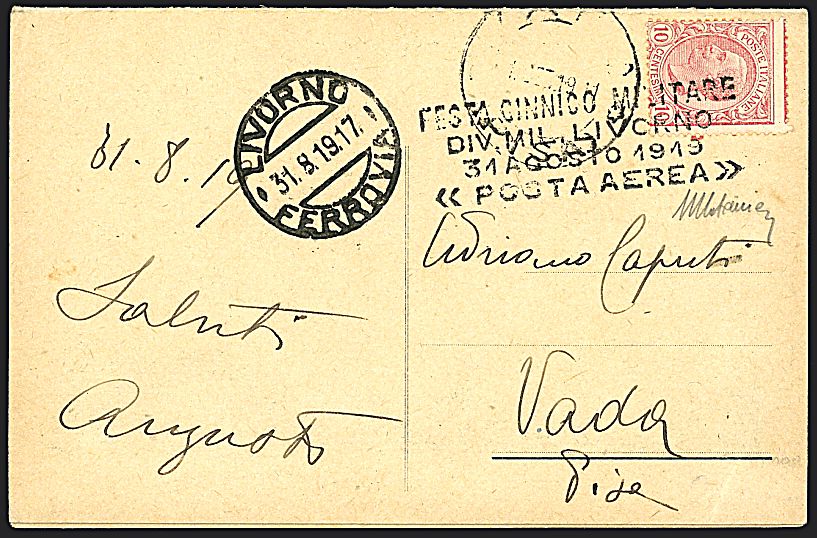 31.8.19
Saluti
Augusto
LIVORNO
31.8.19.17.
FERROVIA
POSTE ITALIANE
10 CENTESIMI 10
FESTA GINNICO MILITARE
DIV. MIL. LIVORNO
31 AGOSTO 1919
« POSTA AEREA »
Adriano Caputi
Vada
Pisa